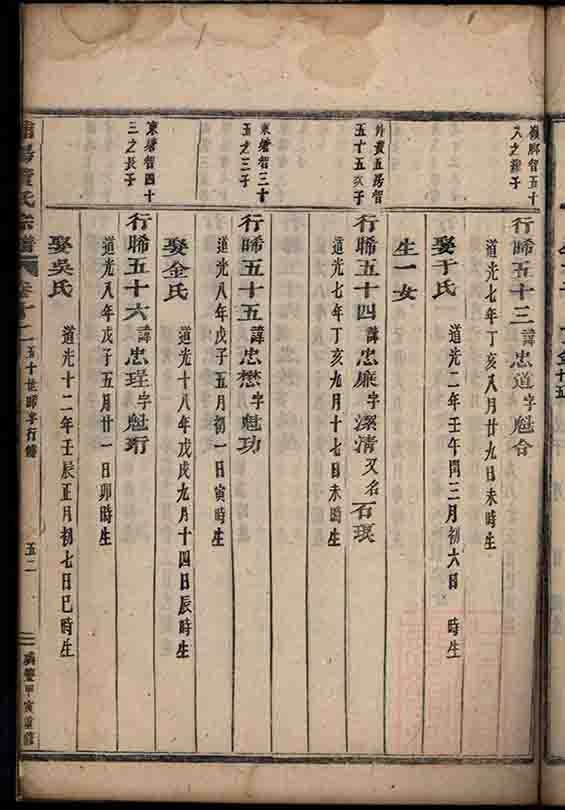 五十
八之
行晞五十三諱忠道字魁合
道光七年丁亥八月廿九日未時生
娶于氏 道光二年壬午閏三月初六日 時生
生一女
外黃五房智
五十五次子
行晞五十四諱忠廉字潔清又名石琪
道光七年丁亥九月十七日未時生
東塘智三十
五之三子
行晞五十五諱忠懋字魁功
道光八年戊子五月初一日寅時生
娶金氏 道光十八年戊戌九月十四日辰時生
東塘智四十
三之長子
行晞五十六諱忠珵字魁珩
道光八年戊子五月廿一日卯時生
娶吳氏 道光十二年壬辰正月初七日巳時生
氏宗譜 卷十二 五十世晞字行傳 五二 甲寅重修